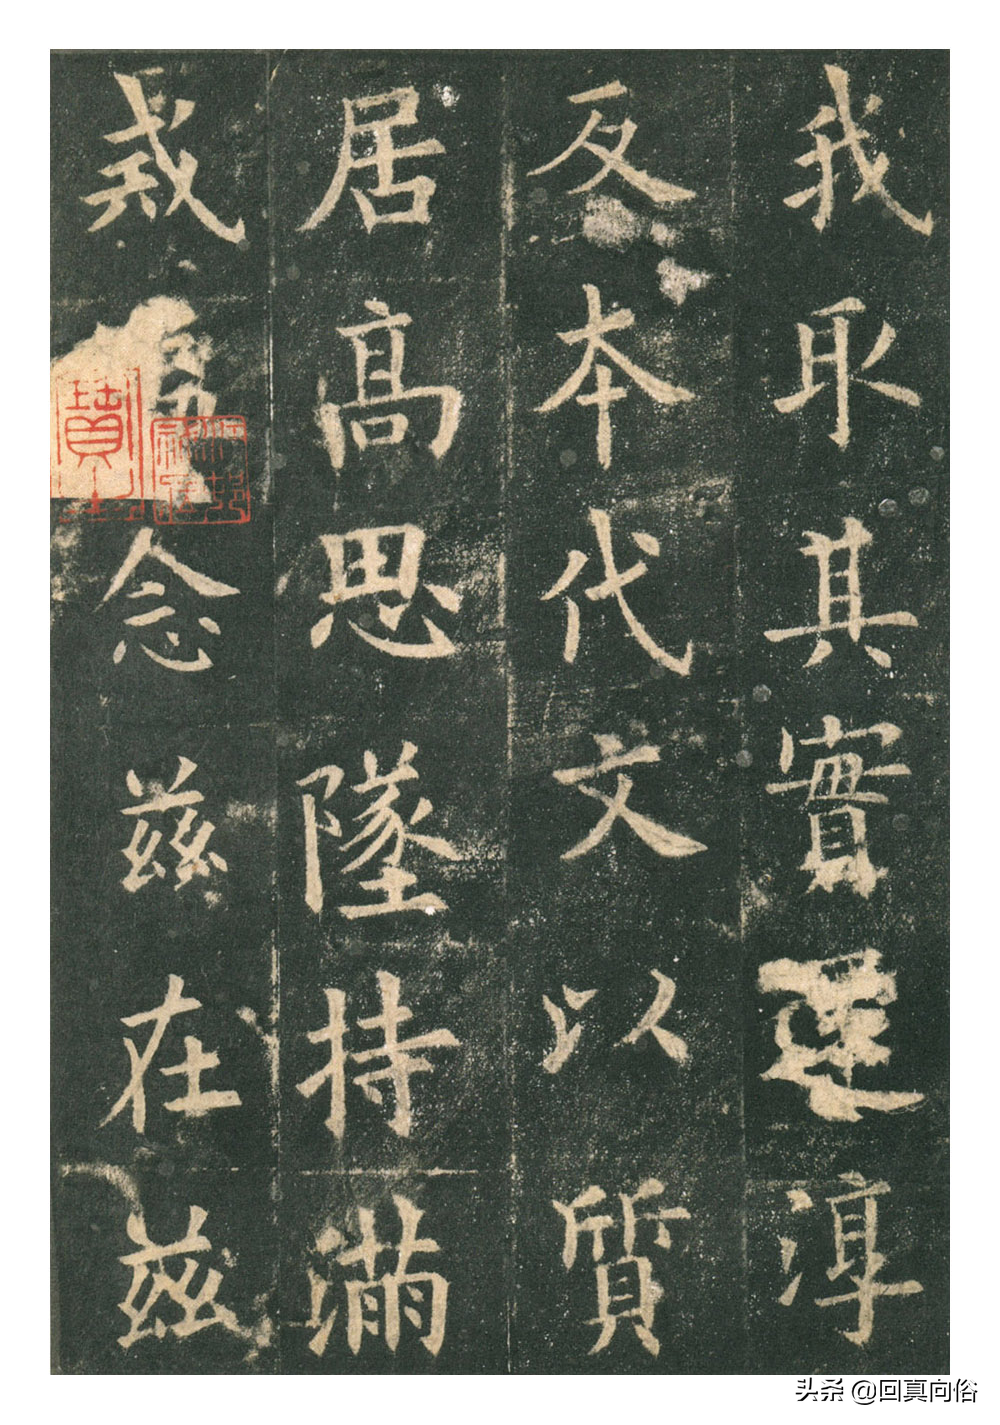 我取其實還淳
反本代文以質
居高思墜持滿
戒溢念茲在茲
头条 @回真向俗